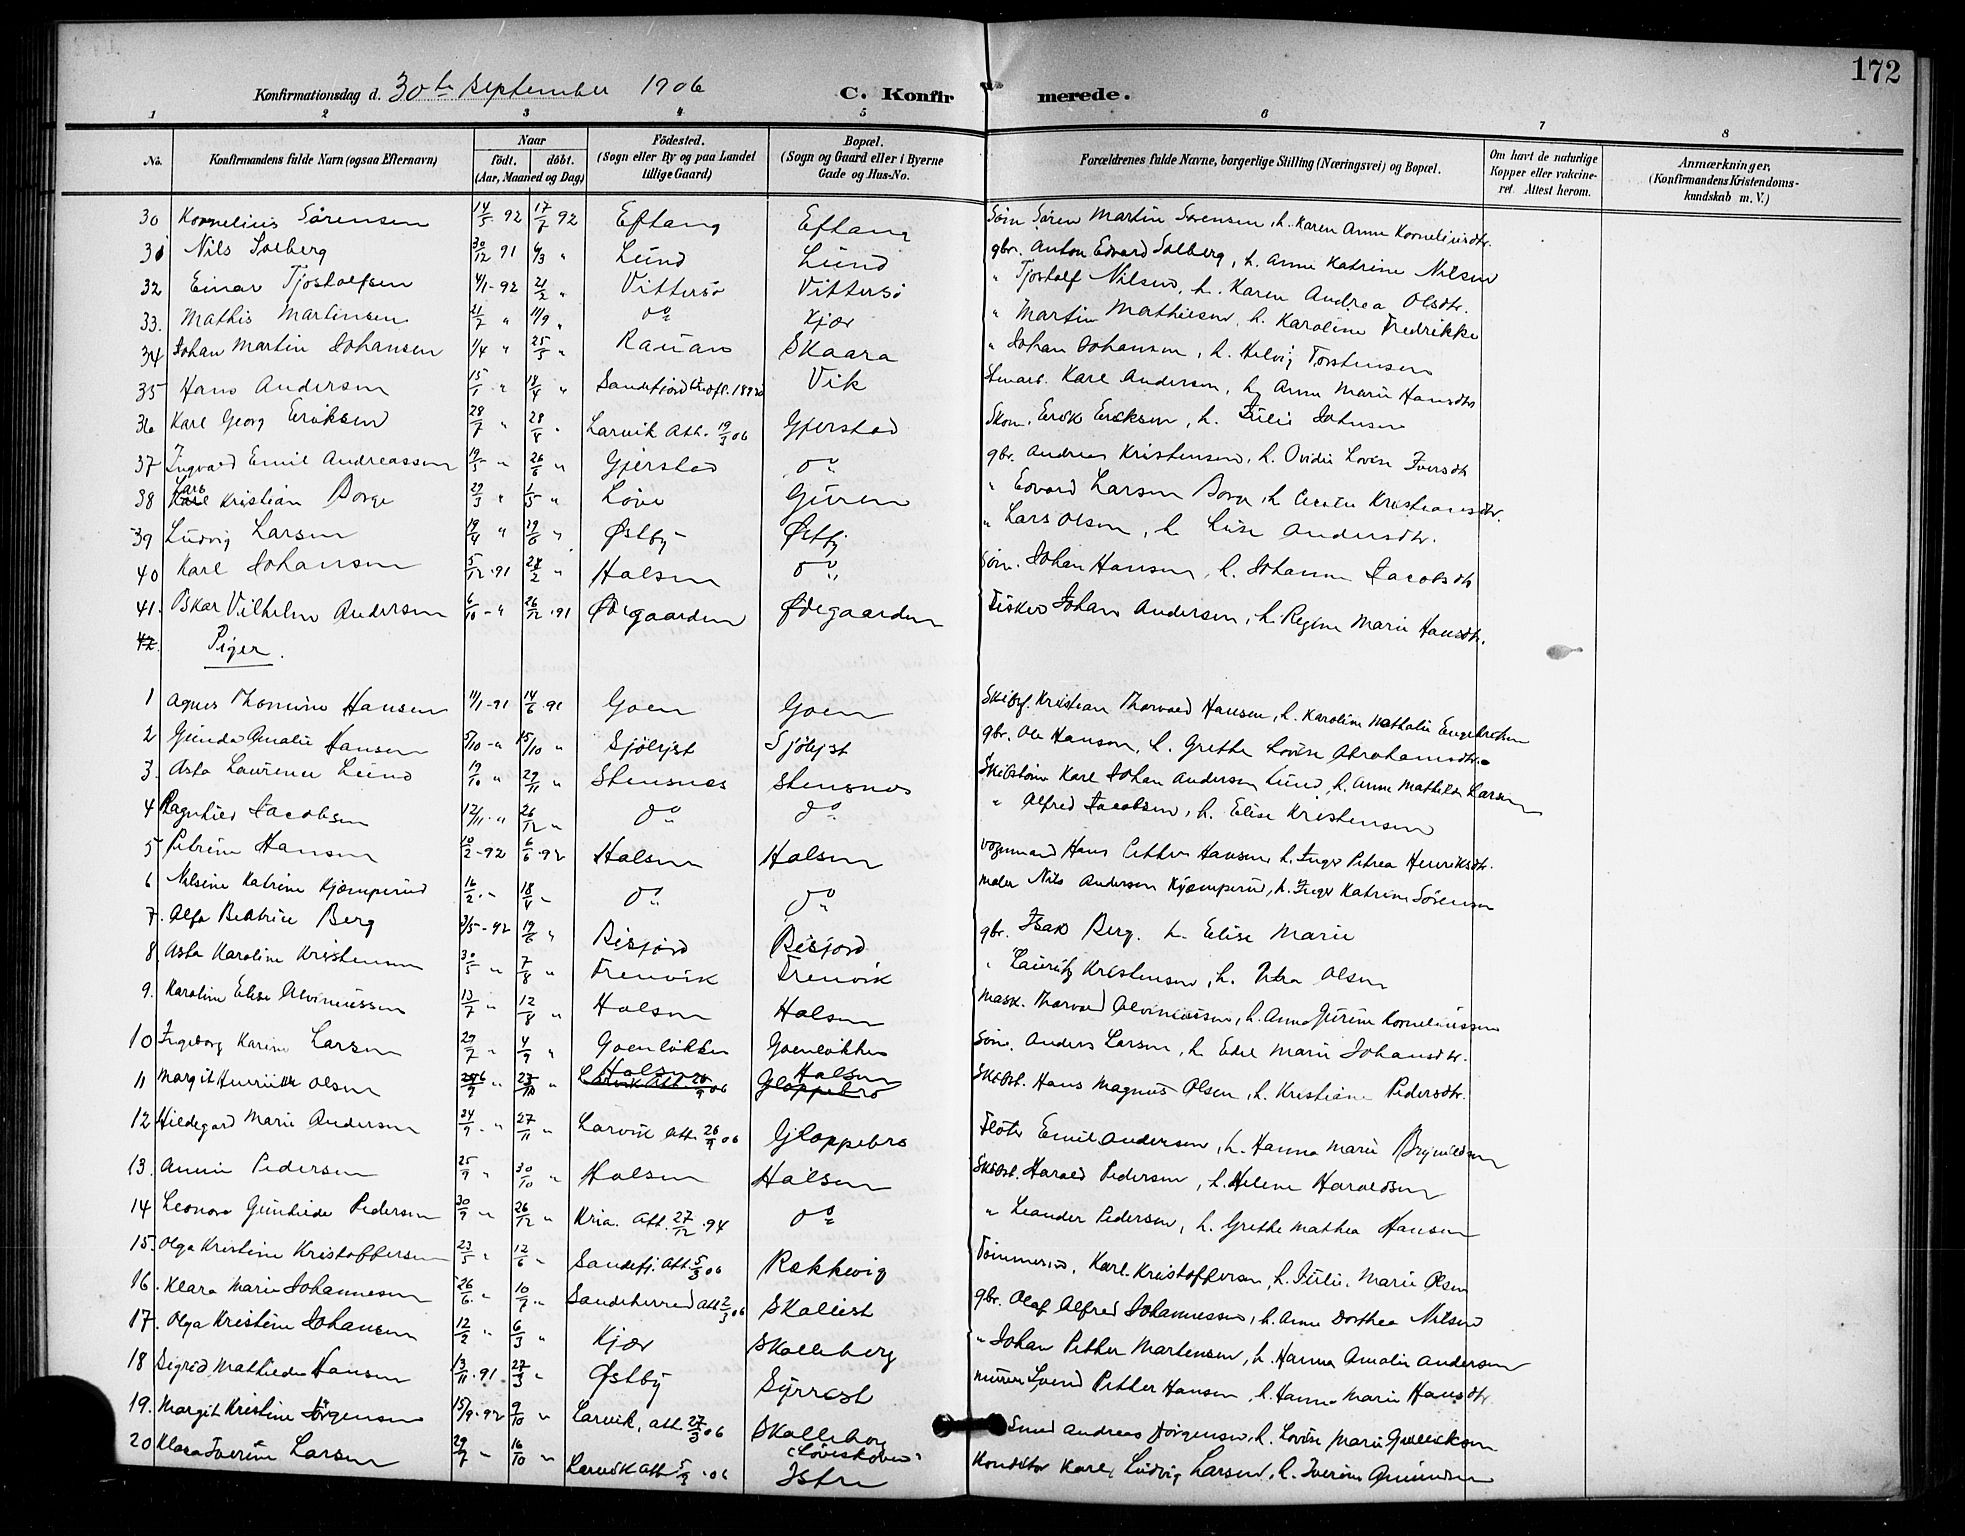 172
Konfirmationsdag d. 30te September 1906 C. Konfir merede.
1 2 3 4 5 6 7 8
No. Konfirmandens fulde Navn (ogsaa Efternavn) Naar født. døbt. (Aar, Maaned og Dag) Fødested. (Sogn eller By og paa Landet tillige Gaard) Bopæl. (Sogn og Gaard eller i Byerne Gade og Hus-No. Forældrenes fulde Navne, borgerlige Stilling (Næringsvei) og Bopæl. Om havt de naturlige Kopper eller vakcineret. Attest herom. Anmærkninger, (Konfirmandens Kristendomskundskab m. V.)
30 Kornelius Sörensen 14/5 92 17/7 92 Eftang Eftang Søm. Sören Martin Sørensen, h. Karen Anne Korneliusdtr.
31 Nils Solberg 30/12 91 6/3 " Lund Lund gbr. Anton Edvard Solberg, h. Anne Katrine Nilsen
32 Einar Tjostolfsen 4/1-92 21/2 " Vittersö Vittersö " Tjostolf Nilsen, h. Karen Andrea Olsdtr.
33. Mathis Martinsen 21/7 " 11/9 " do Kjær " Martin Mathisen, h. Karoline Fredrikke
34 Johan Martin Johansen 1/4 " 25/5 " Rauan Skaara " Johan Johansen, h. Helvig Torstensen
35 Hans Andersen 15/1 " 18/4 " Sandefjord Vik Stenarb. Karl Andersen, h. Anne Marie Hansdtr
36 Karl Georg Eriksen 28/7 " 28/8 " Larvik Att. 19/3 06 Gjerstad Skom. Erik Eriksen, h. Julie Johnsen
37 Ingvald Emil Andreassen 19/5 " 26/6 " Gjerstad do gbr. Andreas Kristensen, h. Ovidie Lovise Iversdtr
38 Lars Kristian Borge 29/3 " 1/5 " Löve Guren " Edvard Larsen Borge, h. Cecilie Kristiansdtr.
39 Ludvig Larsen 19/4 " 19/6 " Østby Østby " Lars Olsen, h. Lise Andersdtr.
40 Karl Johansen 5/12-91 28/2 " Halsen do Søm. Johan Hansen, h. Johanne Jacobsdtr
41. Oskar Vilhelm Andersen 6/10 - " 26/12 .91 Ødegaarden Ødegaarden Fisker Johan Andersen, h. Regine Marie Hansdtr.
42 Piger.
1 Agnes Thomine Hansen 11/1-91 14/6 .91 Goen Goen Skibsf. Kristian Thorvald Hansen, h. Karoline Mathalie Engebretsen
2 Gunda Amalie Hansen 5/10 - " 15/10 " Sjölyst Sjölyst gbr. Ole Hansen, h. Grethe Lovise Abrahamsdtr.
3. Asta Laurence Lund 19/10 " 29/11 " Stensnes Stensnes Skibstöm. Karl Johan Andersen Lund, h. Anne Mathilde Larsen
4 Ragnhild Jacobsen 12/11 . " 26/12 " do do " Alfred Jacobsen, h. Elise Kristensen
5 Petrine Hansen 10/2-92 6/6 .92 Halsen Halsen Vognmand Hans Petter Hansen, h. Inger Petrea Henriksdtr.
6 Nilsine Katrine Kjæmperud 16/2 . " 18/4 " do do Maler Nils Andersen Kjæmperud, h. Inger Katrine Sörensen
7. Alfa Beatrice Berg 3/5-92 19/6 " Risfjord Risfjord gbr. Isak Berg. h. Elise Marie
8 Asta Karoline Kristensen 30/5 " 7/8 " Trenvik Trenvik " Lauritz Kristensen, h. Petra Olsen
9. Karoline Elise Alvinussen 13/7 " 12/8 " Halsen Halsen Mask. Thorvald Alvinussen, h. Anna Jurine Korneliussen
10 Ingeborg Karine Larsen 29/7 " 4/9 " Goenlökken Goenlökken Söm. Anders Larsen, h. Edel Marie Johansdtr.
11 Margit Henriette Olsen " 23/10 " Halsen Halsen Skibst. Hans Magnus Olsen, h. Kristiane Pedersdtr.
12 Hildegard Marie Andersen 24/9 . " 27/11 " Larvik Att. 26/9 06 Gloppebro Fløter Emil Andersen, h. Hanna Marie Brynildsen
13. Annie Pedersen 25/9 " 30/10 " Halsen Halsen Skibst. Harald Pedersen, h. Helene Haraldsen
14 Leonora Gunhilde Pedersen 30/9 " 26/12 " Kria. Att. 27/12 .94 do " Leander Pedersen, h. Grethe Mathea Hansen
15. Olga Kristine Kristoffersen 23/5 " 12/6 " Sandefj. Att. 5/3 06 Rekkevig Tömmerm. Karl Kristoffersen, h. Julie Marie Olsen
16. Klara Marie Johannesen 26/6 . " 10/7 " Sandeherred Att 2/3 06 Skallist gbr. Olaf Alfred Johannessen, h. Anne Dorthea Nilsen
17. Olga Kristine Johansen 12/2 " 6/3 " Kjær Skalleberg " Johan Petter Martensen, h. Hanna Amalie Andersen
18 Sigrid Mathilde Hansen 13/11 .91 27/3 " Østby Syrrest Murer Svend Petter Hansen, h. Hanne Marie Hansdtr.
19. Margit Kristine Jörgensen 15/9-92 9/10 " Larvik, Att 27/3 06 Skalleberg (Löveskoven) Smed Andreas Jörgensen, h. Lovise Marie Gulliksen
20 Klara Iverine Larsen 29/7 " 16/10 " Larvik Att 5/3 .06 Istre Konditor Karl Ludvig Larsen, h. Iverine Amundsen